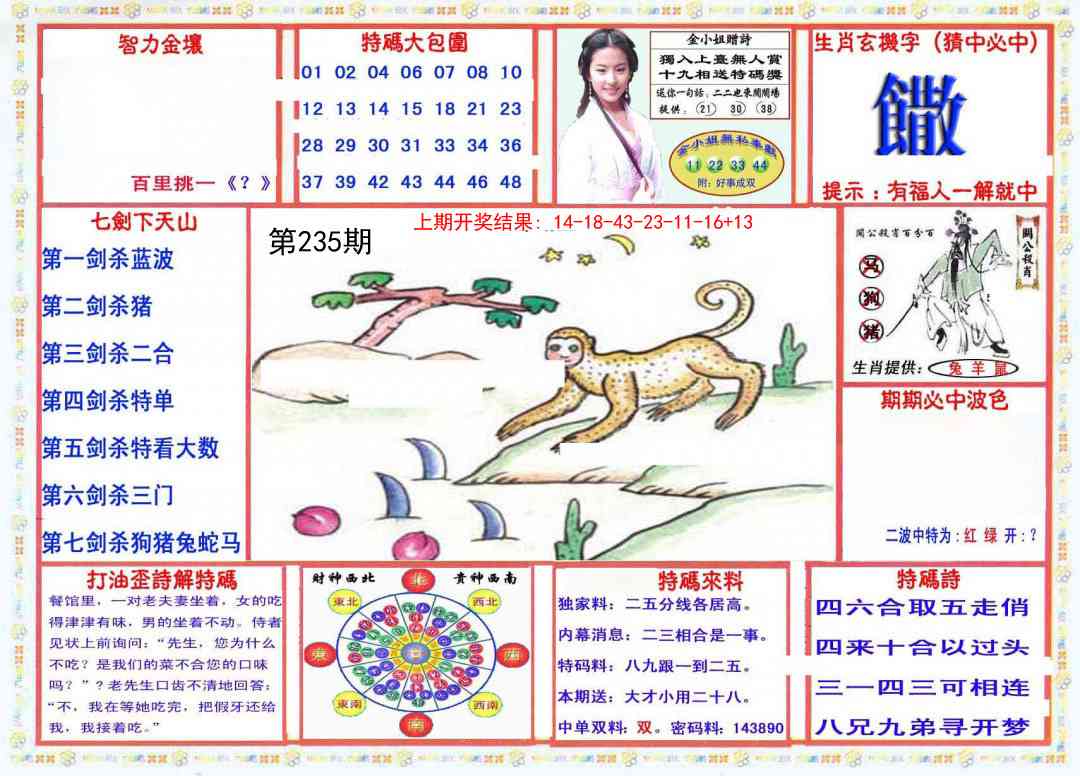 智力金壤
百里挑一《？》
特碼大包圍
01 02 04 06 07 08 10
12 13 14 15 18 21 23
28 29 30 31 33 34 36
37 39 42 43 44 46 48
金小姐贈詩
獨入上臺無人賞
十九相送特碼獎
送你一句話：二二也來鬧鬧場
提供：21 30 38
金小姐無私奉獻
11 22 33 44
附：好事成双
生肖玄機字（猜中必中）
饊
提示：有福人一解就中
七劍下天山
第一剑杀蓝波
第二剑杀猪
第三剑杀二合
第四剑杀特单
第五剑杀特看大数
第六剑杀三门
第七剑杀狗猪兔蛇马
上期开奖结果：14-18-43-23-11-16+13
第235期
關公殺肖百分百
關公殺肖
马
狗
猪
生肖提供：兔 羊 鼠
期期必中波色
二波中特为：红 绿 开：？
打油歪詩解特碼
餐馆里，一对老夫妻坐着，女的吃
得津津有味，男的坐着不动。侍者
见状上前询问：“先生，您为什么
不吃？是我们的菜不合您的口味
吗？”？老先生口齿不清地回答：
“不，我在等她吃完，把假牙还给
我，我接着吃。”
財神西北 貴神西南
北
東北 西北
東 西
東南 西南
南
特碼來料
独家料：二五分线各居高。
内幕消息：二三相合是一事。
特码料：八九跟一到二五。
本期送：大才小用二十八。
中单双料：双。密码料：143890
特碼詩
四六合取五走俏
四来十合以过头
三一四三可相连
八兄九弟寻开梦